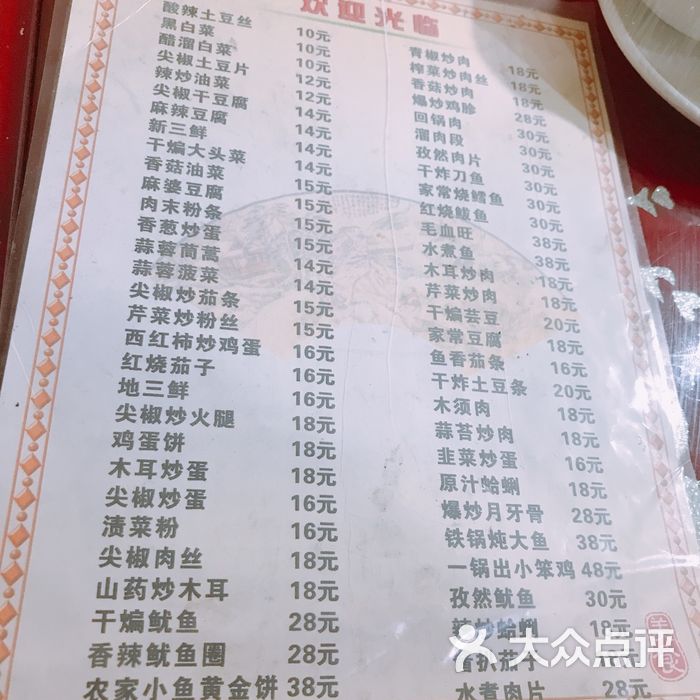 欢迎光临
酸辣土豆丝 10元
黑白菜 10元
醋溜白菜 10元
尖椒土豆片 12元
辣炒油菜 12元
尖椒干豆腐 14元
麻辣豆腐 14元
新三鲜 14元
干煸大头菜 14元
香菇油菜 15元
麻婆豆腐 15元
肉末粉条 15元
香葱炒蛋 15元
蒜蓉茼蒿 14元
蒜蓉菠菜 14元
尖椒炒茄条 15元
芹菜炒粉丝 15元
西红柿炒鸡蛋 16元
红烧茄子 16元
地三鲜 16元
尖椒炒火腿 18元
鸡蛋饼 18元
木耳炒蛋 18元
尖椒炒蛋 16元
渍菜粉 16元
尖椒肉丝 18元
山药炒木耳 18元
干煸鱿鱼 28元
香辣鱿鱼圈 28元
农家小鱼黄金饼 38元
青椒炒肉 18元
榨菜炒肉丝 18元
香菇炒肉 18元
爆炒鸡胗 28元
回锅肉 30元
溜肉段 30元
孜然肉片 30元
干炸刀鱼 30元
家常烧鳕鱼 30元
红烧鲅鱼 30元
毛血旺 38元
水煮鱼 38元
木耳炒肉 18元
芹菜炒肉 18元
干煸芸豆 20元
家常豆腐 18元
鱼香茄条 16元
干炸土豆条 20元
木须肉 18元
蒜苔炒肉 18元
韭菜炒蛋 16元
原汁蛤蜊 18元
爆炒月牙骨 28元
铁锅炖大鱼 38元
一锅出小笨鸡 48元
孜然鱿鱼 30元
辣炒蛤蜊 18元
水煮肉片 28元
大众点评